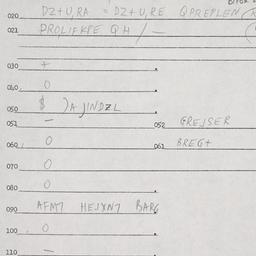 020 DZ+U,RA = DZ+U,RE QPREPLEN
021 PROLIFKPE QH / —
030 +
040 0
050 $ )A JINDZL
051 — 052 GREJSER
060 0 061 BREG+
070 0
080 0
090 AFM7 HEJXN7 BARG
100 0
110 —